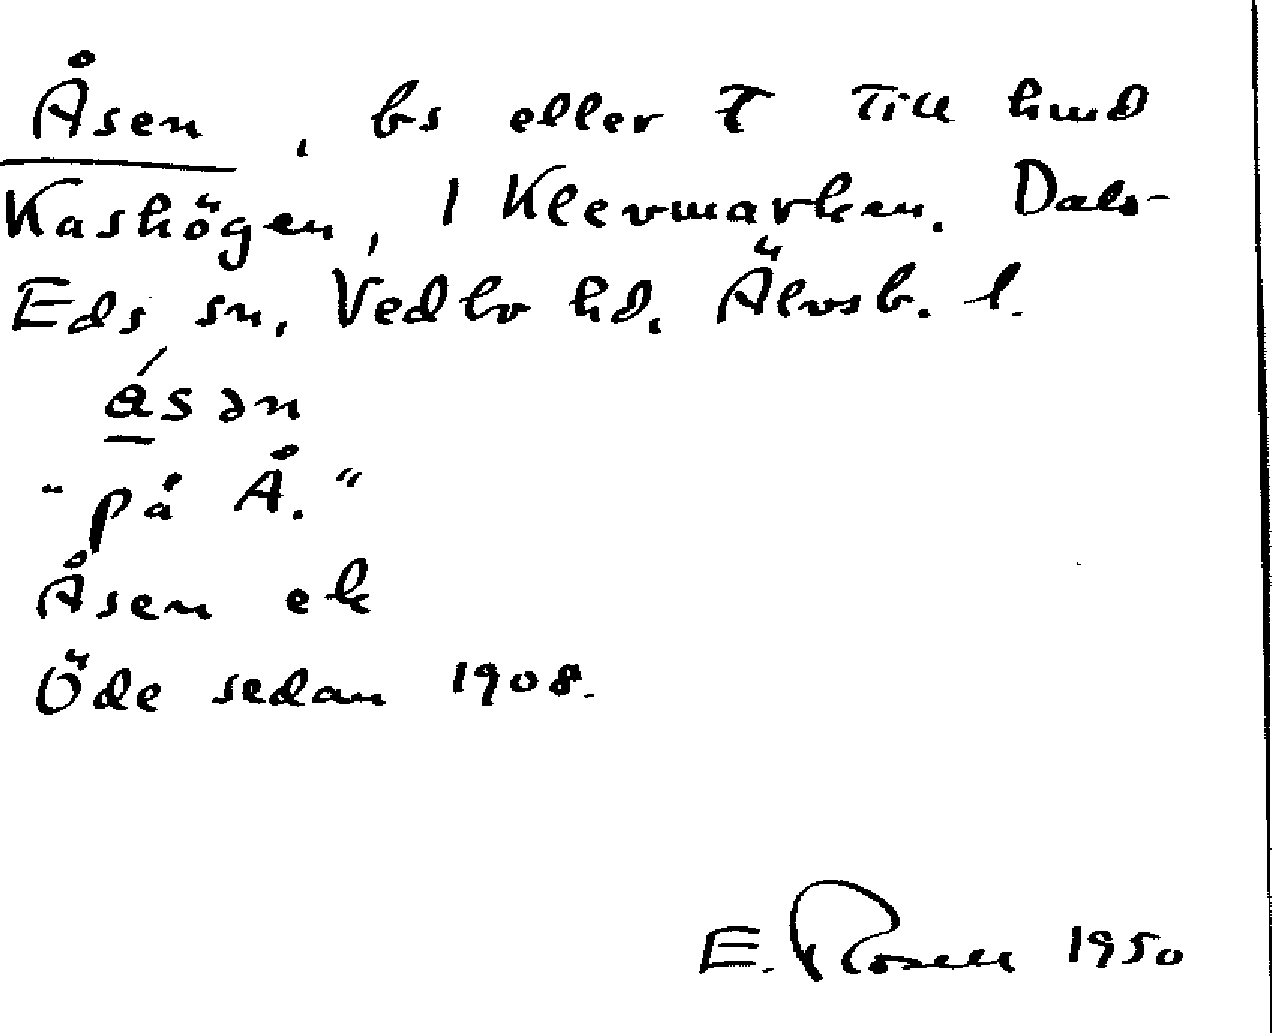 Åsen, bs eller t till hmd
Kashögen, 1 Klevmarken. Dals-
Eds sn, Vedbo hd. Älvsb. l.
åsən
"på Å."
Åsen ek
Öde sedan 1908.
E. Rosell 1950